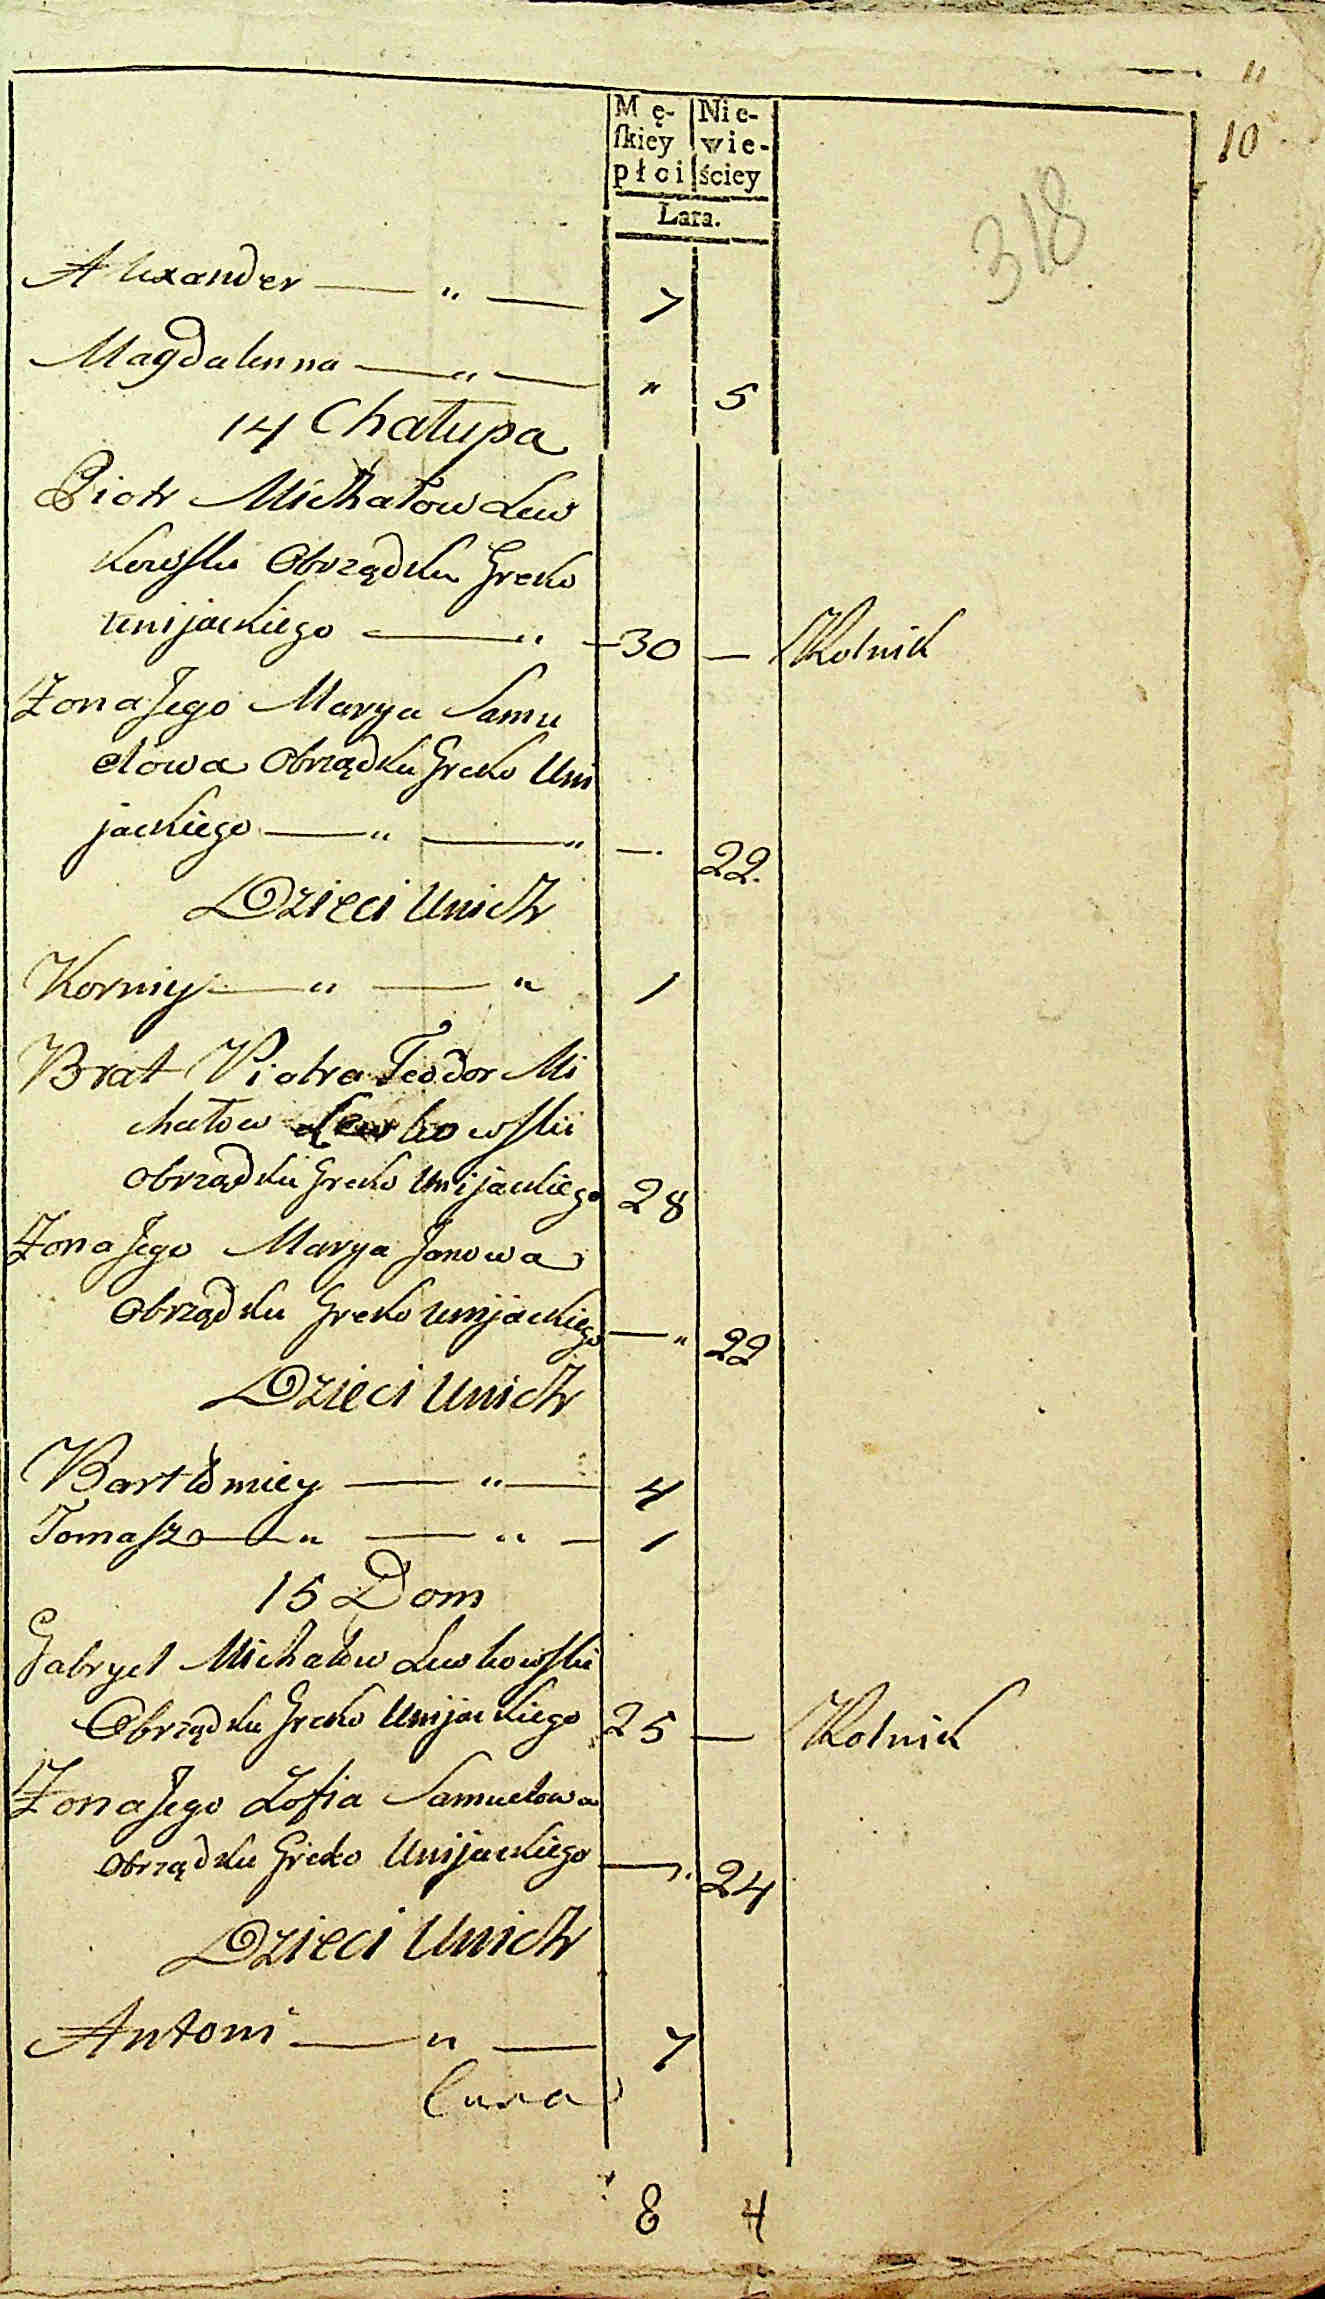 "
10
Mę- Nie-
ſkiey wie-
płci ściey
Lata.
318
Alexander — " — 7
Magdalenna — " — " 5
14 Chałupa
Piotr Michałow Lew
kowski Obrządku Greko
unijackiego — " — 30 — Rolnik
Żona Jego Marya Samu
elowa Obrządku Greko Uni
jackiego — " — " — 22.
Dzieci Unich
Korniy — " — " 1
Brat Piotra Teodor Mi
chałow Lewkowski
Obrządku Greko Unijackiego 28
Żona Jego Marya Janowa
Obrządku Greko unijackiego — " 22
Dzieci Unich
Bartłomiey — " — 4
Tomasz — " — " — 1
15 Dom
Gabryel Michałow Lewkowski
Obrządku Greko Unijackiego 25 — Rolnik
Żona Jego Zofia Samuelowa
Obrządku Greko Unijackiego — 24
Dzieci Unich
Antoni — " — 7
8 4